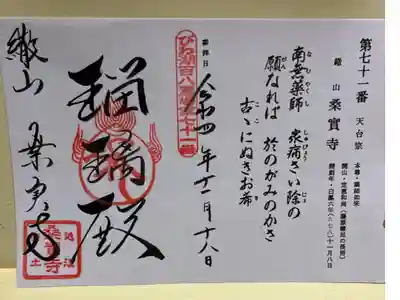 第七十一番 天台宗
繖山 桑實寺
本尊・薬師如来
開山・定恵和尚（藤原鎌足の長男）
開創年・白鳳六年（六七八）十一月八日
南無薬師 衆病さい除の
願なれば 於のがみのかさ
古ゝにぬぎお希
参拝日
令四年十二月十八日
びわ湖百八霊場七十一番
瑠璃殿
繖山 桑実寺
桑實寺